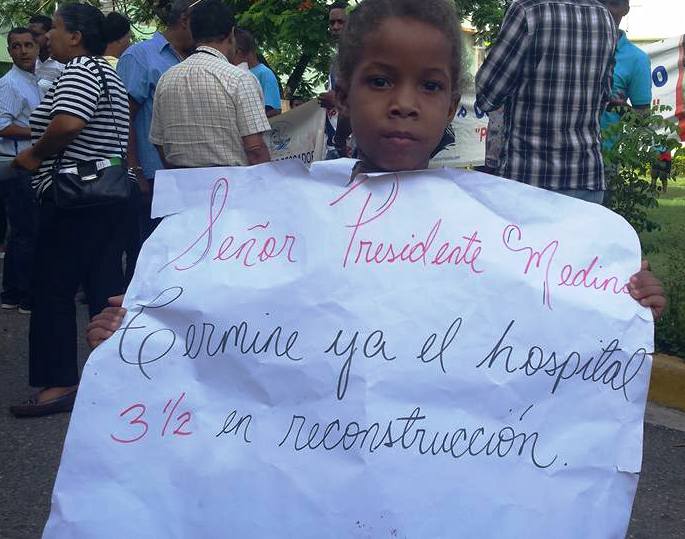 Señor Presidente Medina
Termine ya el hospital
3 1/2 en reconstrucción.